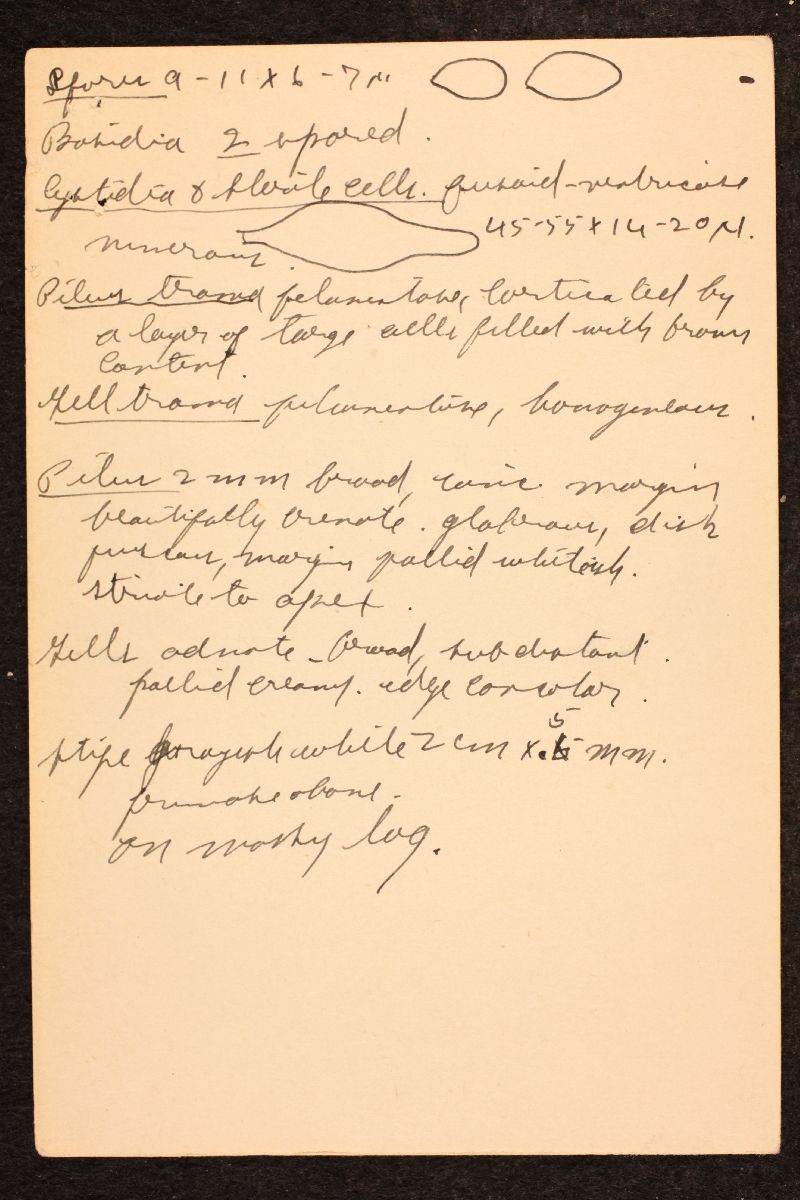 Spores 9-11 x 6-7 μ
Basidia 2 spored.
Cystidia & sterile cells. fusoid-ventricose
numerous. 45-55 x 14-20 μ.
Pileus trama filamentose, corticated by
a layer of large cells filled with brown
content.
Gill trama filamentose, homogeneous.
Pileus 2 mm broad, conic margin
beautifully crenate. glabrous, disk
fuscous, margin pallid whitish.
striate to apex.
Gills adnate - broad, subdistant.
pallid creamy. edge concolor.
Stipe grayish white 2 cm x .5 mm.
pruinose above.
on mossy log.